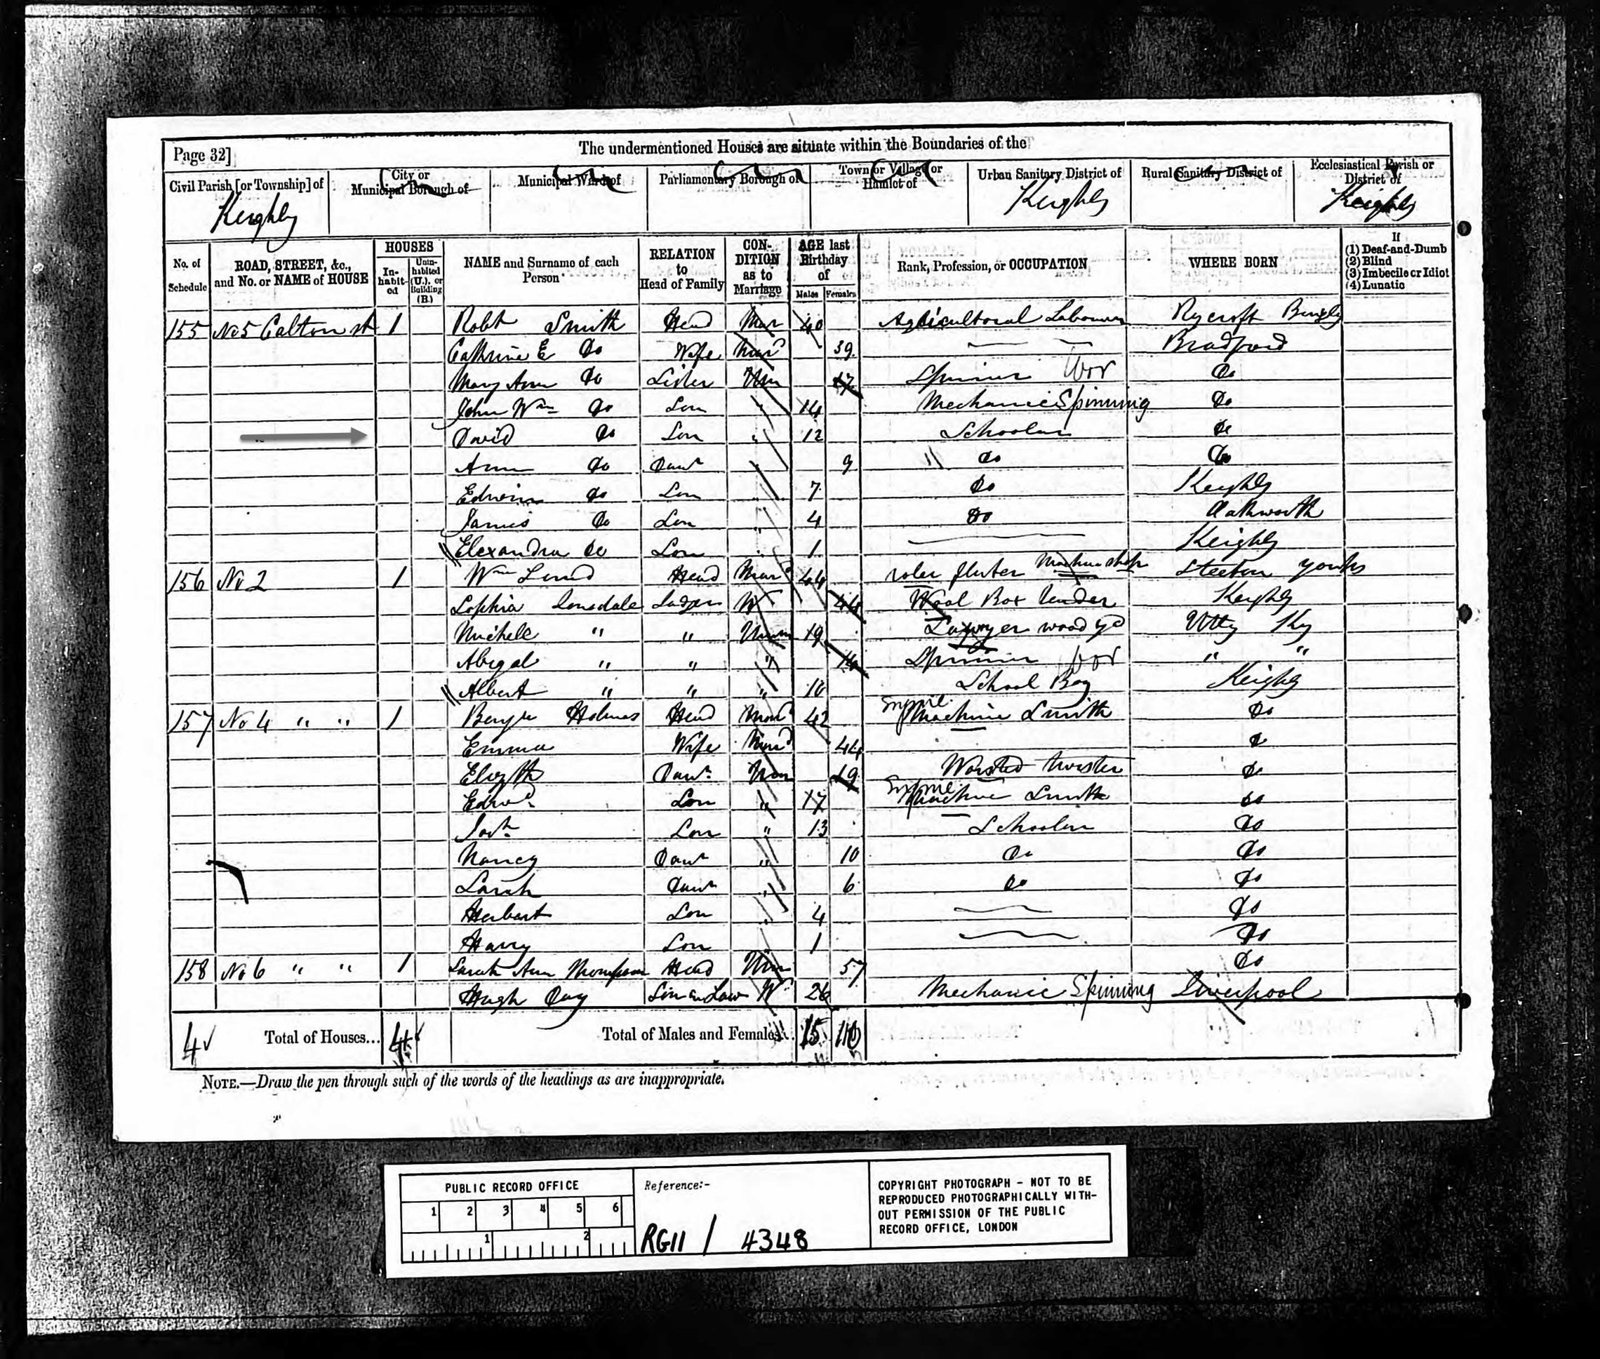 Page 32]
The undermentioned Houses are situate within the Boundaries of the
Civil Parish [or Township] of
City or Municipal Borough of
Municipal Ward of
Parliamentary Borough of
Town or Village or Hamlet of
Urban Sanitary District of
Rural Sanitary District of
Ecclesiastical Parish or District of
Keighley Keighley Keighley
No. of Schedule
ROAD, STREET, &c., and No. or NAME of HOUSE
HOUSES
In-habit-ed
Unin-habited (U.), or Building (B.)
NAME and Surname of each Person
RELATION to Head of Family
CON-DITION as to Marriage
AGE last Birthday of
Males Females
Rank, Profession, or OCCUPATION
WHERE BORN
If
(1) Deaf-and-Dumb
(2) Blind
(3) Imbecile or Idiot
(4) Lunatic
155 No 5 Calton st 1 Robt Smith Head Mar 40 Agricultural Labourer Rycroft Bingly
Cathrine E Do Wife Mard 39 Bradford
Mary Ann Do Sister Un 17 Spinner Wor Do
John Wm Do Son " 14 Mechanic Spinning Do
David Do Son " 12 Scholar Do
Ann Do Daur " 9 Do Do
Edwin Do Son " 7 Do Keighly
James Do Son " 4 Do Oakworth
Elexandra Do Son 1 Keighly
156 No 2 1 Wm Lund Head Mar 44 roler fluter Machine shop Steeton Yorks
Sophia Lonsdale Lodger W 44 Wool Box tender Keighly
Michele " " Unm 19 Sawyer wood yd Utty Ky
Abigal " " " Spinner Wor " "
Albert " " " 10 School Boy Keighly
157 No 4 " " 1 Benjn Holmes Head Mard 42 Machine Smith Do
Emma Wife Mard 44 Do
Elizth Daur Unm 19 Worsted twister Do
Edwd Son " 17 Machine Smith Do
Josh Son " 13 Scholar Do
Nancy Daur " 10 Do Do
Sarah Daur " 6 Do Do
Herbert Son 4 Do
Harry Son 1 Do
158 No 6 " " 1 Sarah Ann Thompson Head 57 Do
Hugh Day Son in Law W 26 Mechanic Spinning Liverpool
4 Total of Houses... 4 Total of Males and Females... 15 10
NOTE.—Draw the pen through such of the words of the headings as are inappropriate.
PUBLIC RECORD OFFICE
1 2 3 4 5 6
1 2
Reference:-
RG11 / 4348
COPYRIGHT PHOTOGRAPH - NOT TO BE
REPRODUCED PHOTOGRAPHICALLY WITH-
OUT PERMISSION OF THE PUBLIC
RECORD OFFICE, LONDON